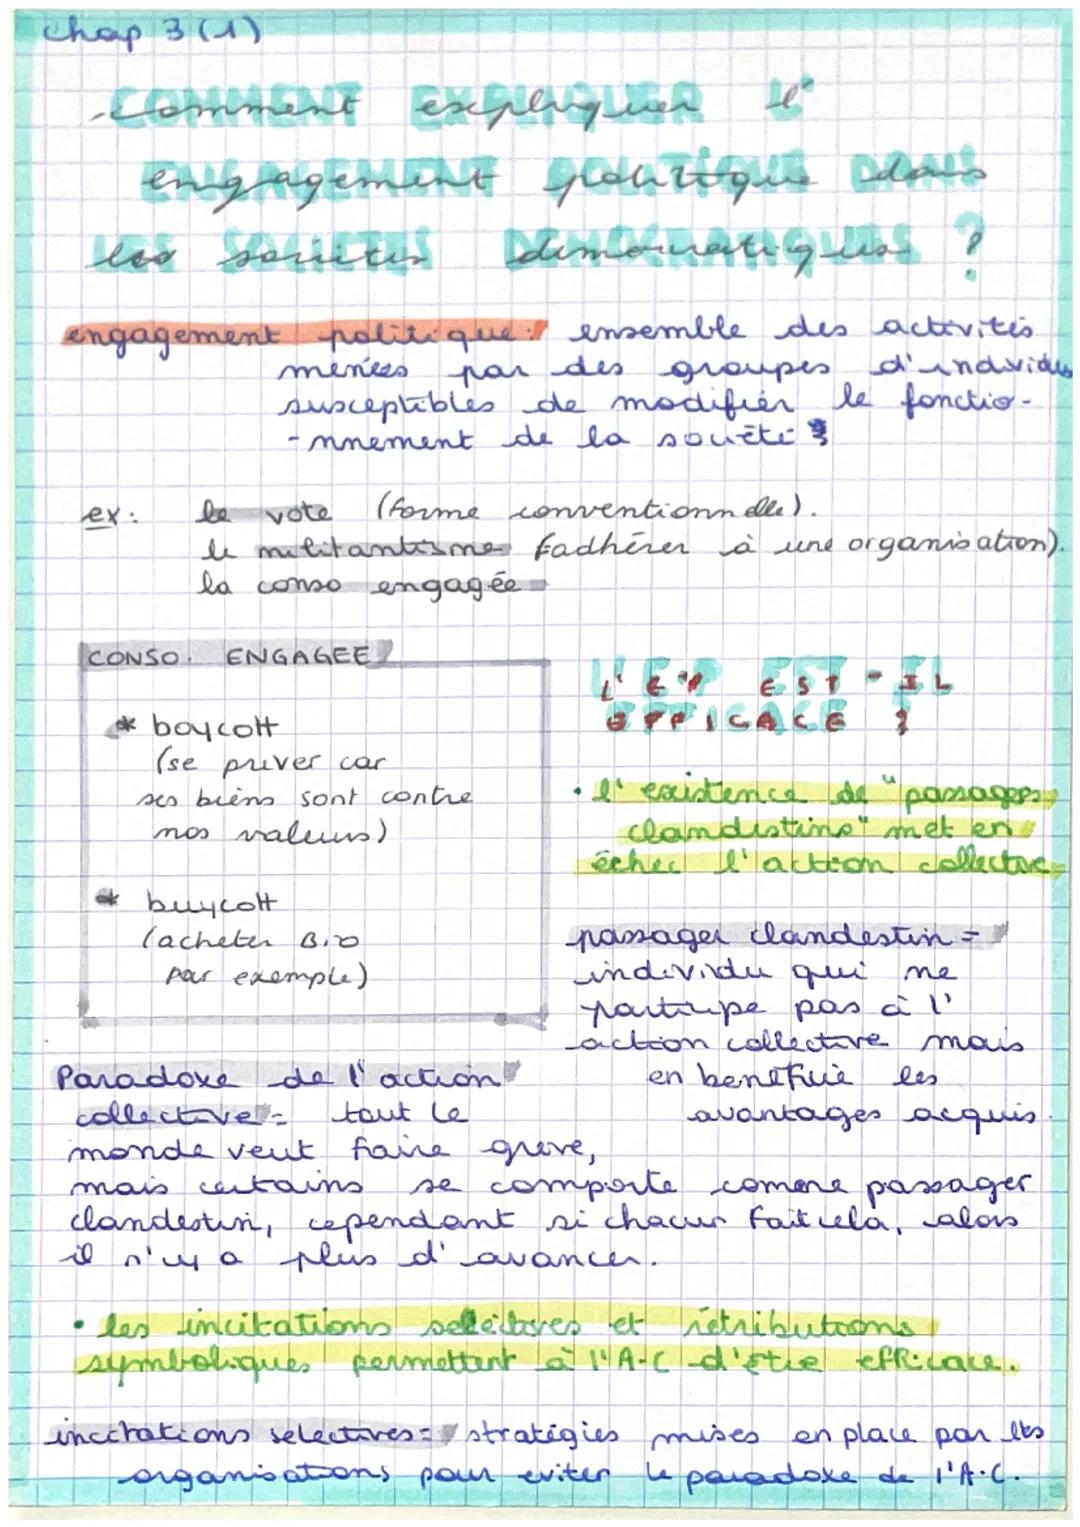 chap 3 (1)
Comment expliquer l'
engagement politique dans
les sociétés démocratiques ?
engagement politique : ensemble des activités
menées par des groupes d'individus
susceptibles de modifier le fonctio-
-nnement de la société
ex : le vote (forme conventionnelle).
le militantisme (adhérer à une organisation).
la conso engagée
CONSO. ENGAGEE
* boycott
(se priver car
ses biens sont contre
nos valeurs)
* buycott
(acheter Bio
par exemple)
L'EP EST-IL
EFFICACE ?
• l'existence de "passagers
clandestins" met en
échec l'action collective
passager clandestin =
individu qui ne
participe pas à l'
action collective mais
en bénéficie les
avantages acquis.
Paradoxe de l'action
collective = tout le
monde veut faire grève,
mais certains se comporte comme passager
clandestin, cependant si chacun fait cela, alors
il n'y a plus d'avancer.
• les incitations sélectives et rétributions
symboliques permettent à l'A-C d'être efficace.
incitations selectives = stratégies mises en place par les
organisations pour eviter le paradoxe de l'A.C.